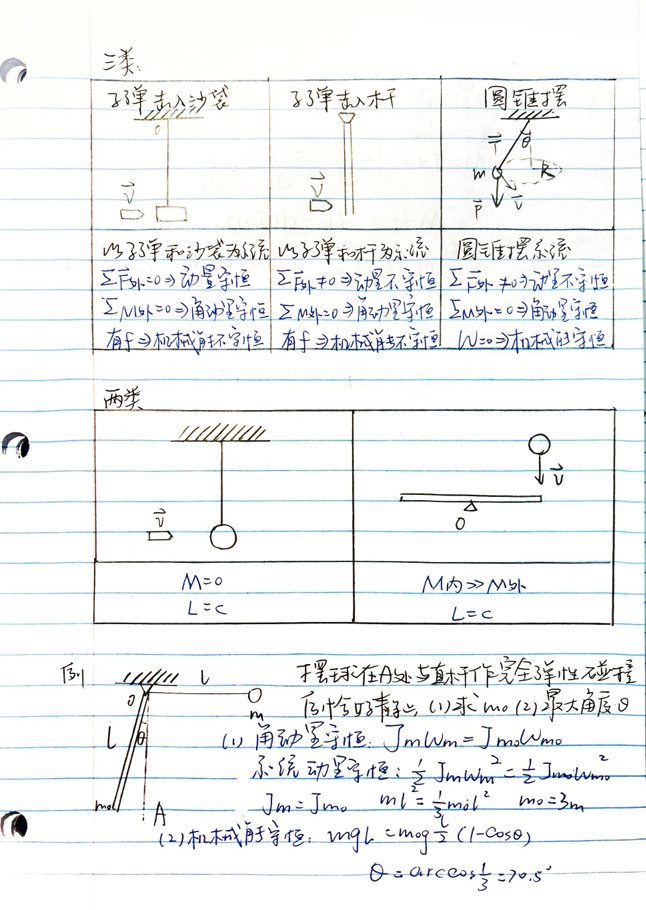 三类:
子弹击入沙袋 子弹击入杆 圆锥摆
o
T⃗ θ
m R
v⃗ v⃗ P⃗ v⃗
以子弹和沙袋为系统 以子弹和杆为系统 圆锥摆系统
ΣF⃗外=0⇒动量守恒 ΣF⃗外≠0⇒动量不守恒 ΣF⃗外≠0⇒动量不守恒
ΣM外=0⇒角动量守恒 ΣM外=0⇒角动量守恒 ΣM外=0⇒角动量守恒
有f⇒机械能不守恒 有f⇒机械能不守恒 W=0⇒机械能守恒
两类
v⃗ v⃗
O
M=0 M内≫M外
L=c L=c
例 O l m 摆球在A处与直杆作完全弹性碰撞
后恰好静止 (1)求m₀ (2)最大角度θ
L θ (1) 角动量守恒: Jmωm=Jm₀ωm₀
系统动量守恒: ½Jmωm²=½Jm₀ωm₀²
m₀ A Jm=Jm₀ ml²=⅓m₀l² m₀=3m
(2)机械能守恒: mgL=m₀g l/2 (1-cosθ)
θ=arccos⅓=70.5°